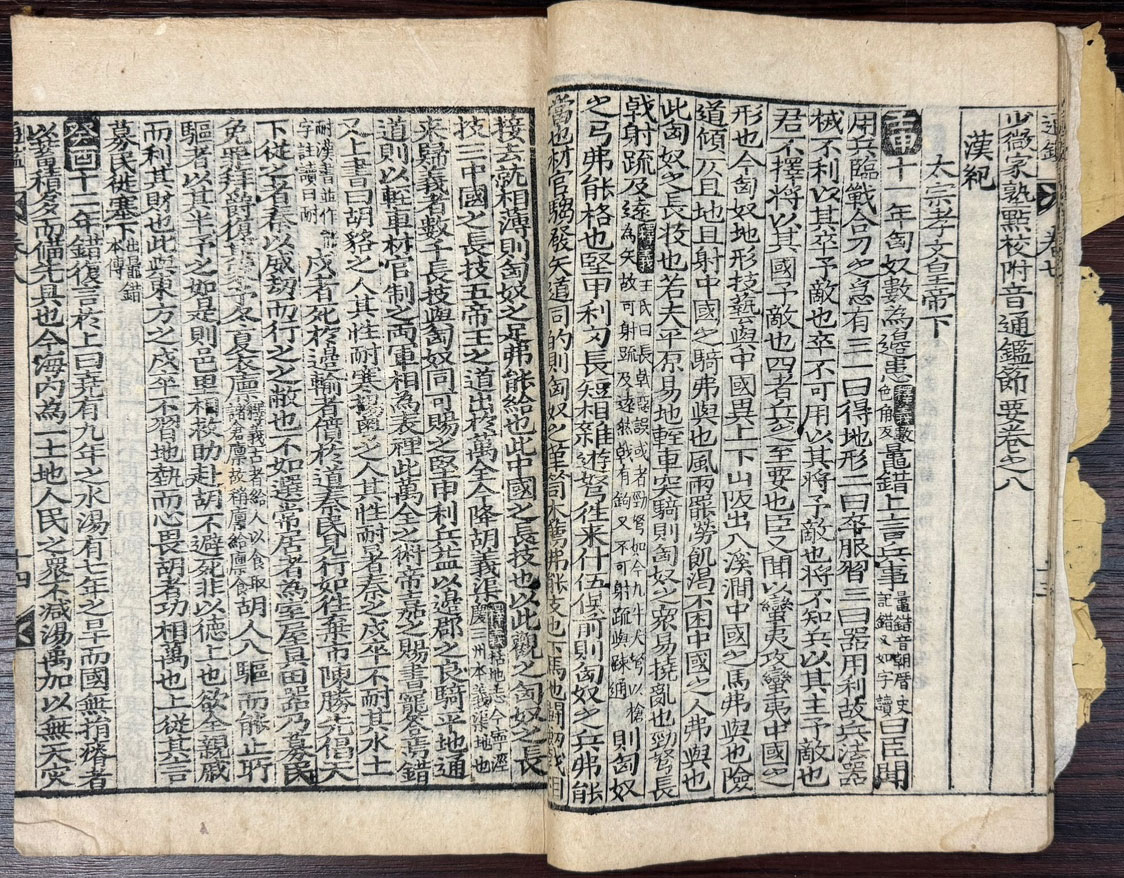 通鑑 卷七
少微家塾點校附音通鑑節要卷之八
漢紀
太宗孝文皇帝下
壬申十一年匈奴數為邊患釋義數色角反鼂錯上言兵事鼂錯音朝曆史記錯又如字讀曰臣聞
用兵臨戰合刃之急有三一曰得地形二曰卒服習三曰器用利故兵法器
械不利以其卒予敵也卒不可用以其將予敵也將不知兵以其主予敵也
君不擇將以其國予敵也四者兵之至要也臣又聞以蠻夷攻蠻夷中國之
形也今匈奴地形技藝與中國異上下山阪出入溪澗中國之馬弗與也險
道傾仄且馳且射中國之騎弗與也風雨罷勞飢渴不困中國之人弗與也
此匈奴之長技也若夫平原易地輕車突騎則匈奴之衆易撓亂也勁弩長
戟射疏及遠釋義王氏曰長戟恐誤或者勁弩如今九牛大弩以槍為矢故可射疏及遠然戟有鉤又不可射疏與踈通則匈奴
之弓弗能格也堅甲利刃長短相雜遊弩往来什伍俱前則匈奴之兵弗能
當也材官騶發矢道同的則匈奴之革笥木薦弗能支也下馬地鬪劒戟相
接去就相薄則匈奴之足弗能給也此中國之長技也以此觀之匈奴之長
技三中國之長技五帝王之道出於萬全今降胡義渠釋義括地志今寧涇慶三州本義渠地也
来歸義者數千長技與匈奴同可賜之堅甲利兵益以邊郡之良騎平地通
道則以輕車材官制之兩軍相為表裡此萬全之術帝嘉之賜書寵答焉錯
又上書曰胡貉之人其性耐寒揚粵之人其性耐暑秦之戍卒不耐其水土
耐漢書並作能字註讀曰耐戍者死於邊輸者僨於道秦民見行如徃棄市陳勝先倡天
下從之者秦以威劫而行之之敝也不如選常居者為室屋具田器乃募民
免罪拜爵復其家予冬夏衣廩食釋義古者給人以食取諸倉廩故稱廩給廩食胡人入驅而能止所
驅者以其半予之如是則邑里相救助赴胡不避死非以德上也欲全親戚
而利其財也此與東方之戍卒不習地勢而心畏胡者功相萬也上從其言
募民徙塞下出鼂錯本傳
癸酉十二年錯復言於上曰堯有九年之水湯有七年之旱而國無捐瘠者
以蓄積多而備先具也今海内為一土地人民之衆不减湯禹加以無天灾
通鑑 卷八 十四